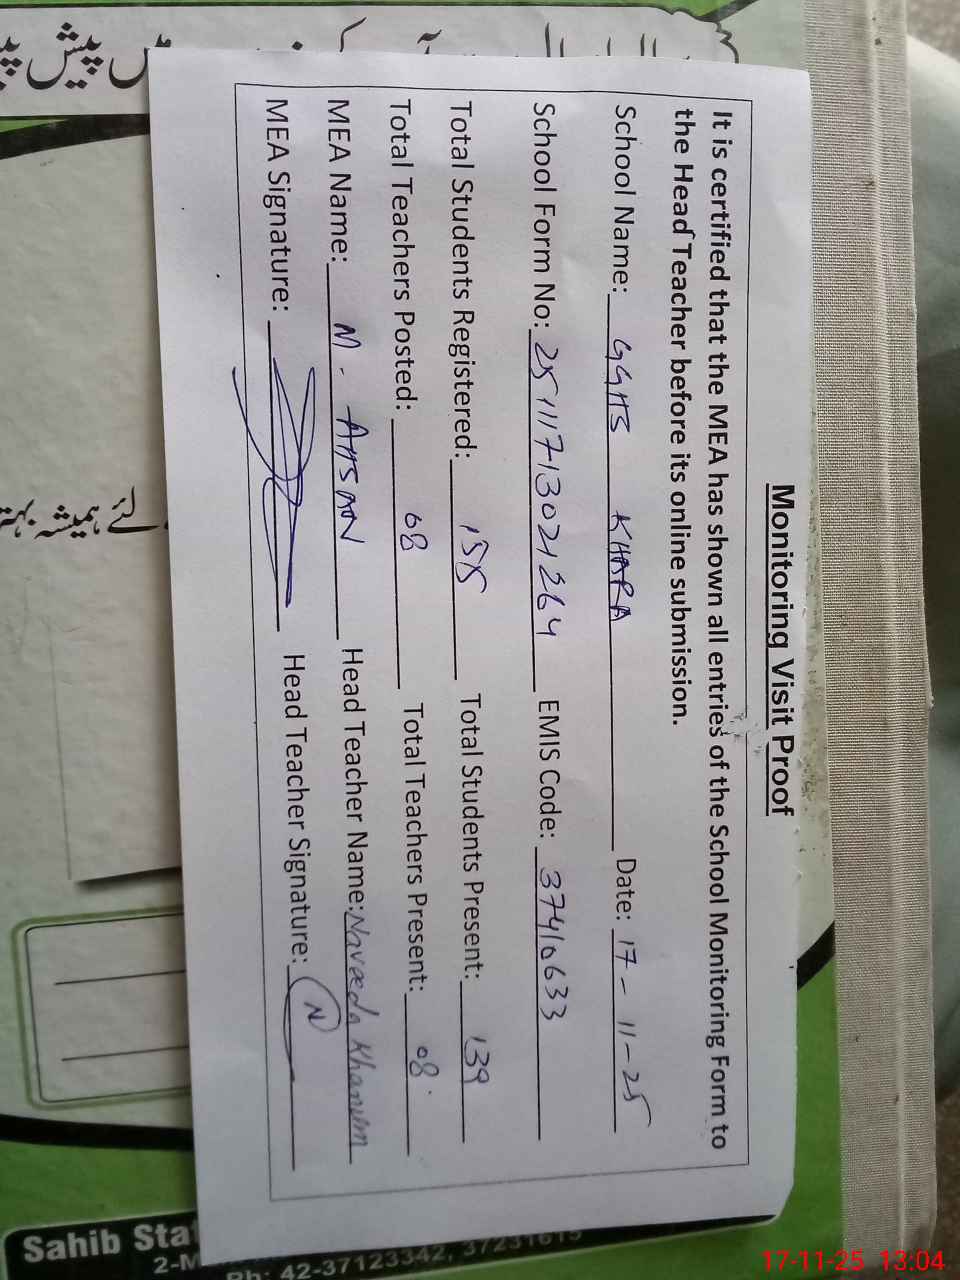 Monitoring Visit Proof
It is certified that the MEA has shown all entries of the School Monitoring Form to
the Head Teacher before its online submission.
School Name: GGHS KHARA Date: 17-11-25
School Form No: 25111713021264 EMIS Code: 37410633
Total Students Registered: 155 Total Students Present: 139
Total Teachers Posted: 08 Total Teachers Present: 08
MEA Name: M. AHSAN Head Teacher Name: Naveeda Khanum
MEA Signature: Head Teacher Signature: N
پیش
لئے ہمیشہ
Sahib
Ph: 42-37123342, 37231615
17-11-25 13:04